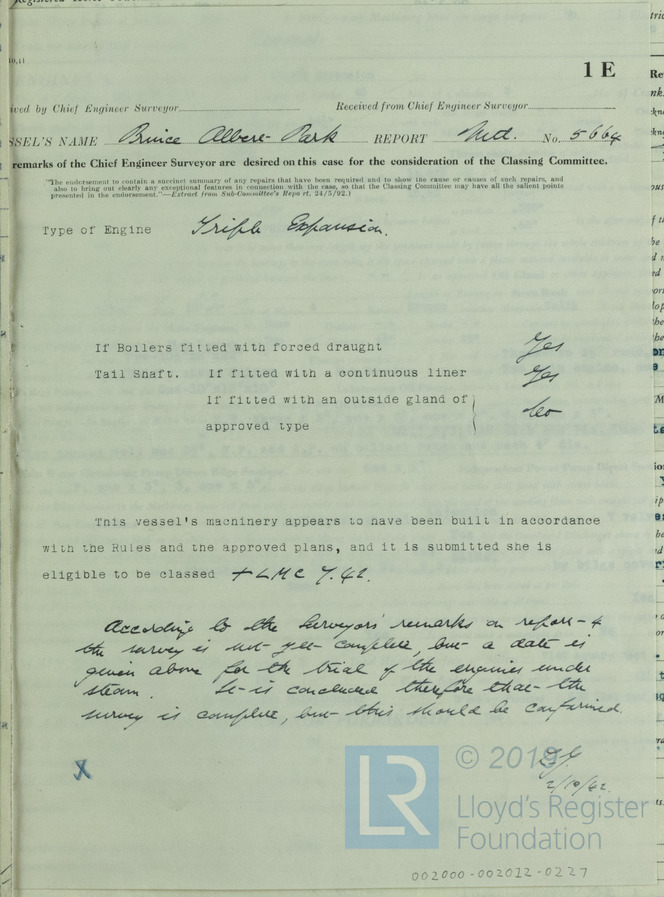 10,11
1 E
ived by Chief Engineer Surveyor
Received from Chief Engineer Surveyor
SSEL'S NAME Prince Albert Park REPORT Mtl. No. 5664
remarks of the Chief Engineer Surveyor are desired on this case for the consideration of the Classing Committee.
"The endorsement to contain a succinct summary of any repairs that have been required and to show the cause or causes of such repairs, and
also to bring out clearly any exceptional features in connection with the case, so that the Classing Committee may have all the salient points
presented in the endorsement."—Extract from Sub-Committee's Report, 24/5/92.)
Type of Engine Triple Expansion.
If Boilers fitted with forced draught Yes
Tail Shaft. If fitted with a continuous liner Yes
If fitted with an outside gland of
approved type No
This vessel's machinery appears to have been built in accordance
with the Rules and the approved plans, and it is submitted she is
eligible to be classed + LMC 7.42.
According to the Surveyors' remarks on report 4
the survey is not yet complete, but a date is
given above for the trial of the engines under
steam. It is concluded therefore that the
survey is complete, but this should be confirmed.
X
2/10/42.
© 2019
LR
Lloyd's Register
Foundation
002000-002012-0227